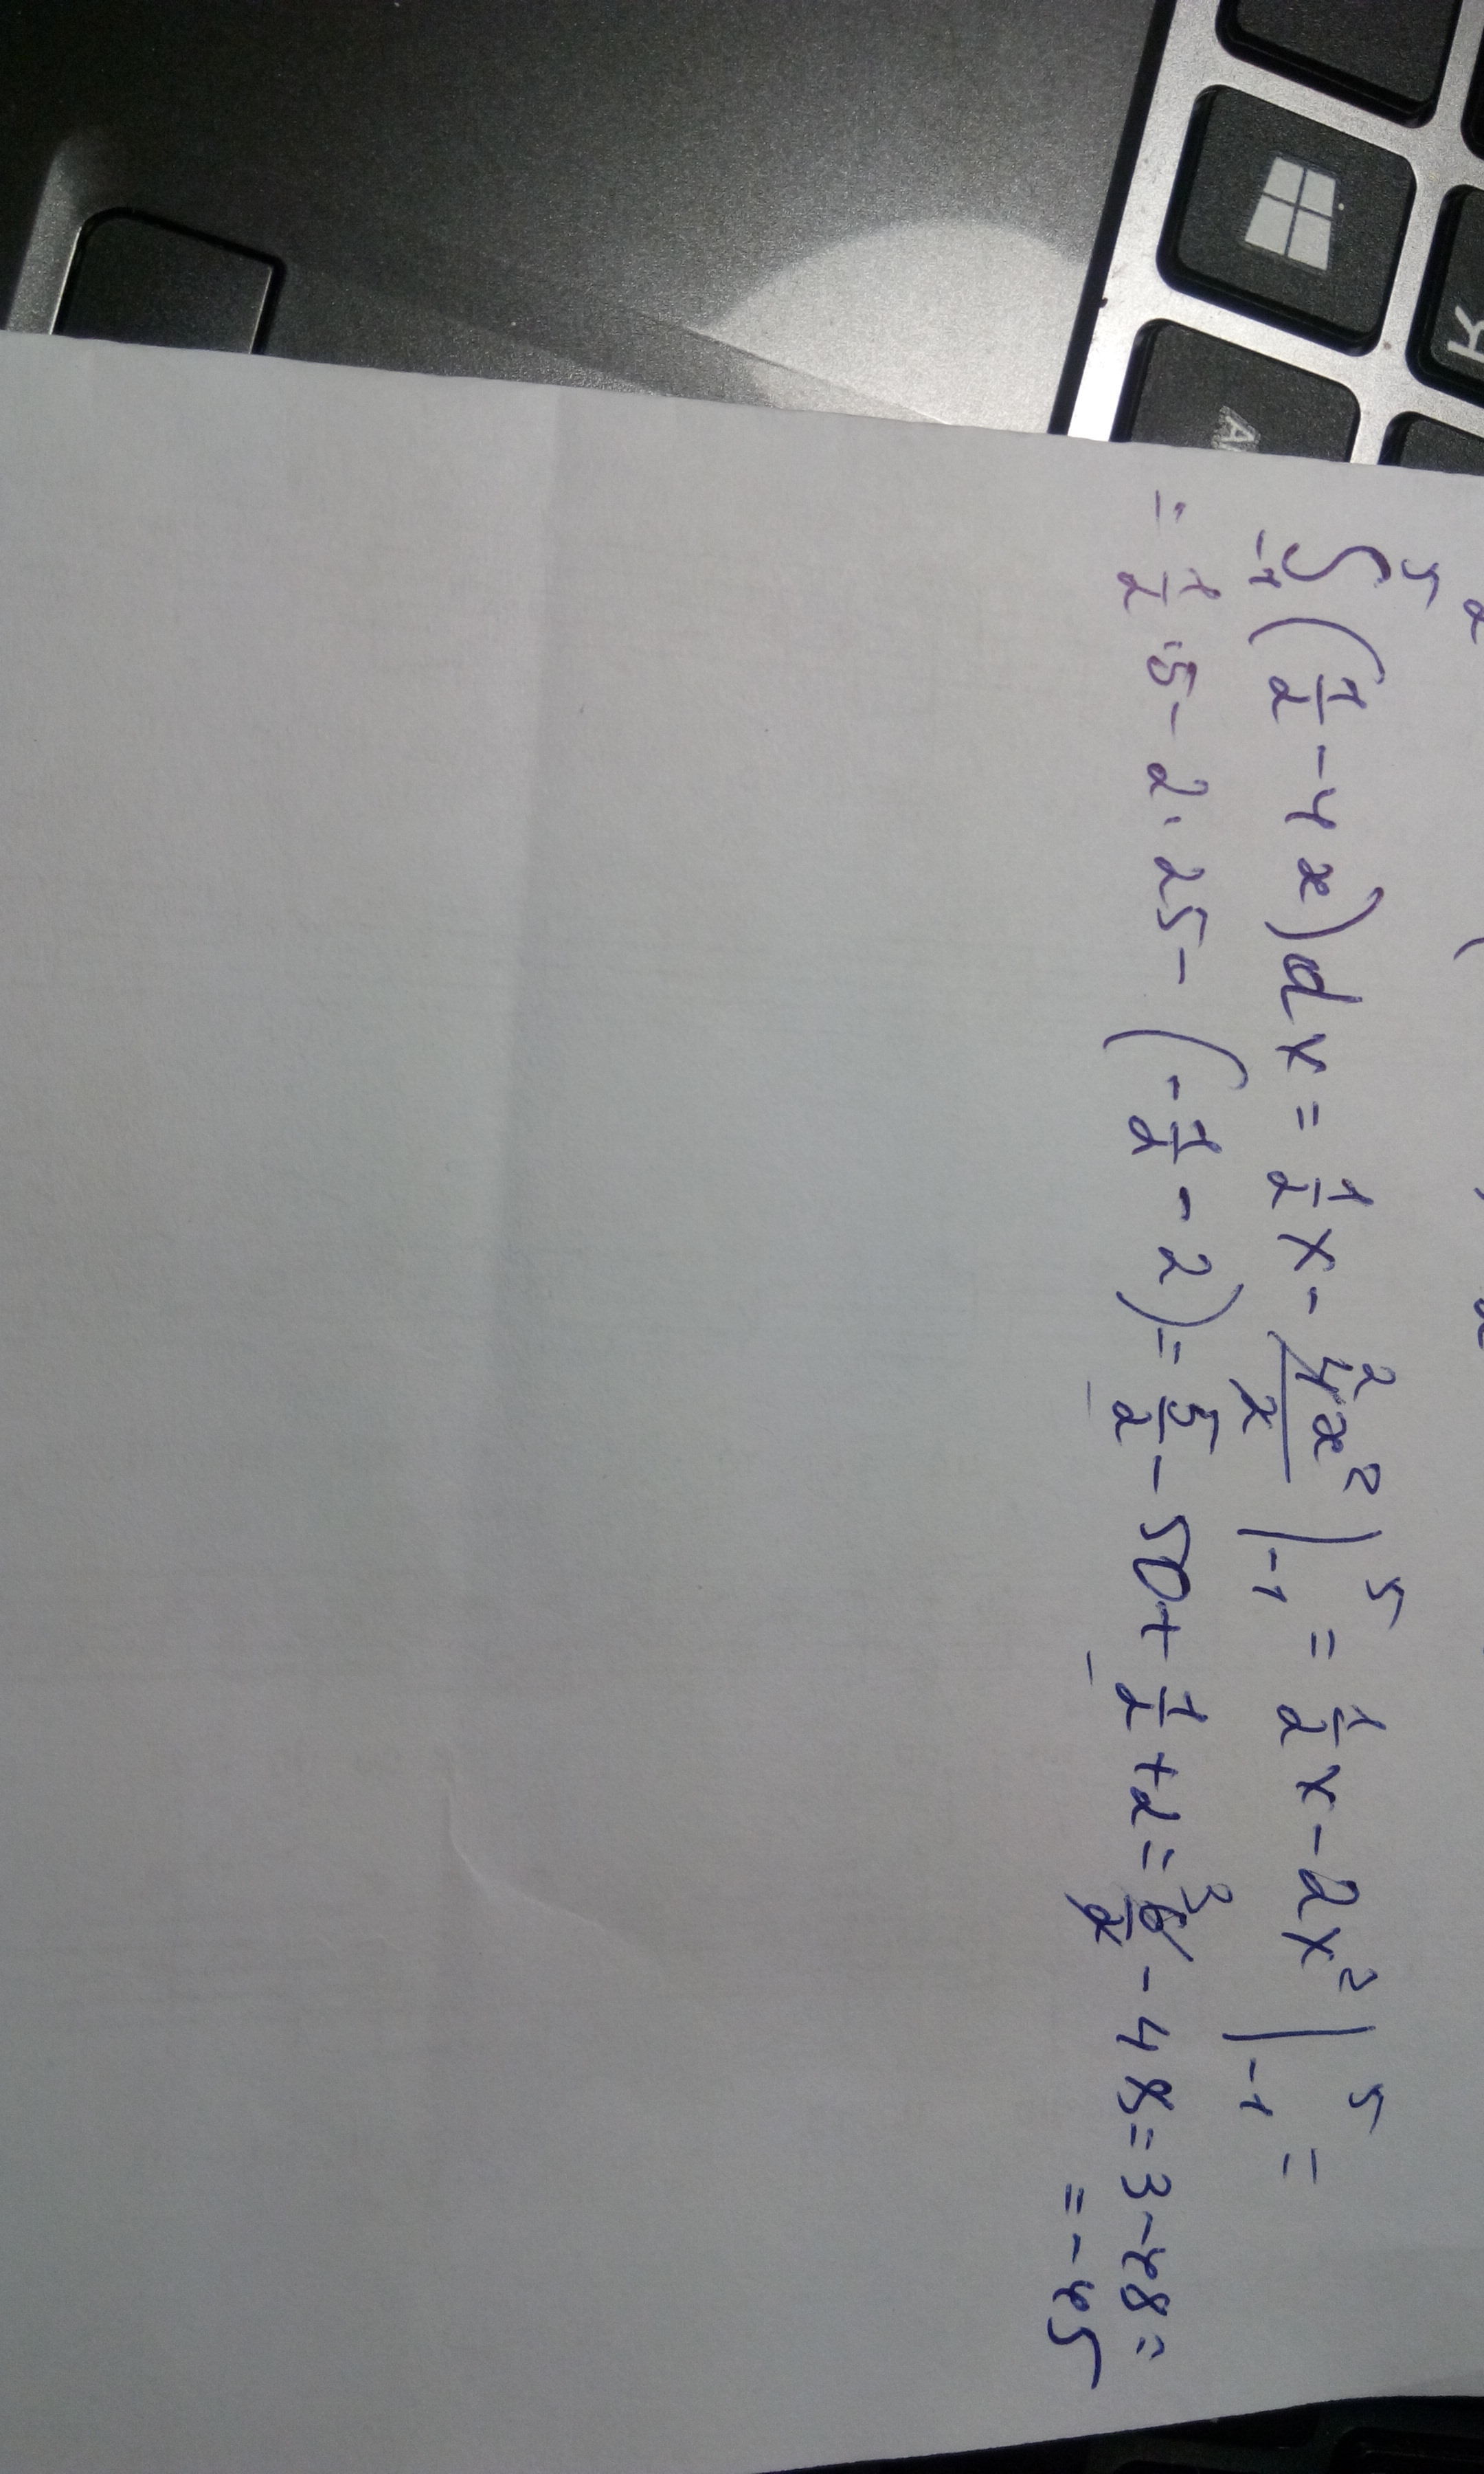 ∫₋₁⁵ (1/2 - 4x)dx = 1/2 x - 4x²/2 |₋₁⁵ = 1/2 x - 2x² |₋₁⁵ =
= 1/2 · 5 - 2 · 25 - (-1/2 - 2) = 5/2 - 50 + 1/2 + 2 = 6/2 - 48 = 3 - 48 =
= -45
Я